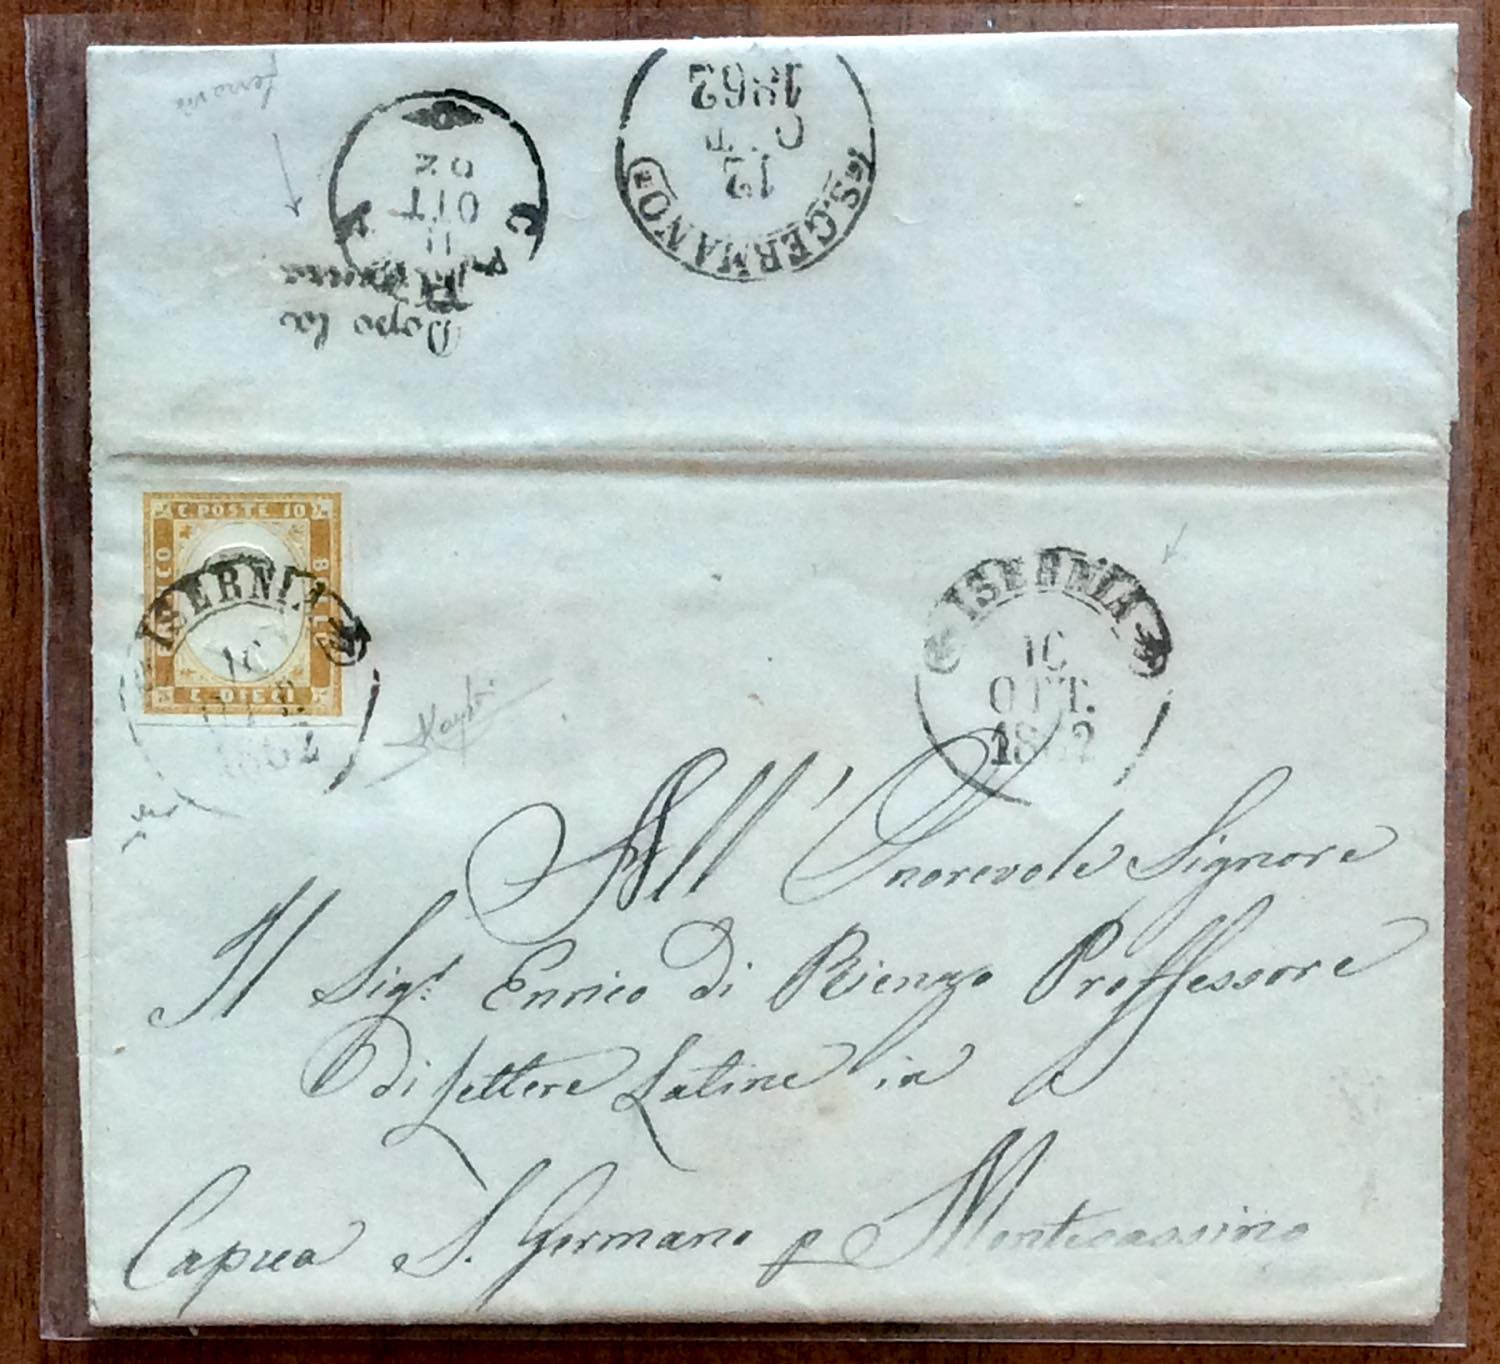 ferrovia
1862
OTT
12
S. GERMANO
C
OTT
11
Dopo la
Partenza
C. POSTE 10
BOLLO
C. DIECI
FRANCO
ISERNIA
10
OTT.
1862
ISERNIA
10
OTT.
1862
All' Onorevole Signore
Il Sigr. Enrico di Rienzo Proffessore
di Lettere Latine in
Capua S. Germano p Montecassino